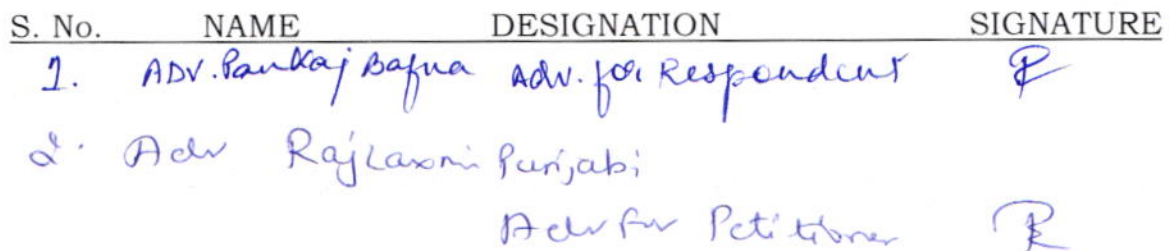 S. No. NAME DESIGNATION SIGNATURE
1. ADV. Pankaj Bafna Adv. for Respondent
2. Adv Rajlaxmi Punjabi
Adv for Petitioner